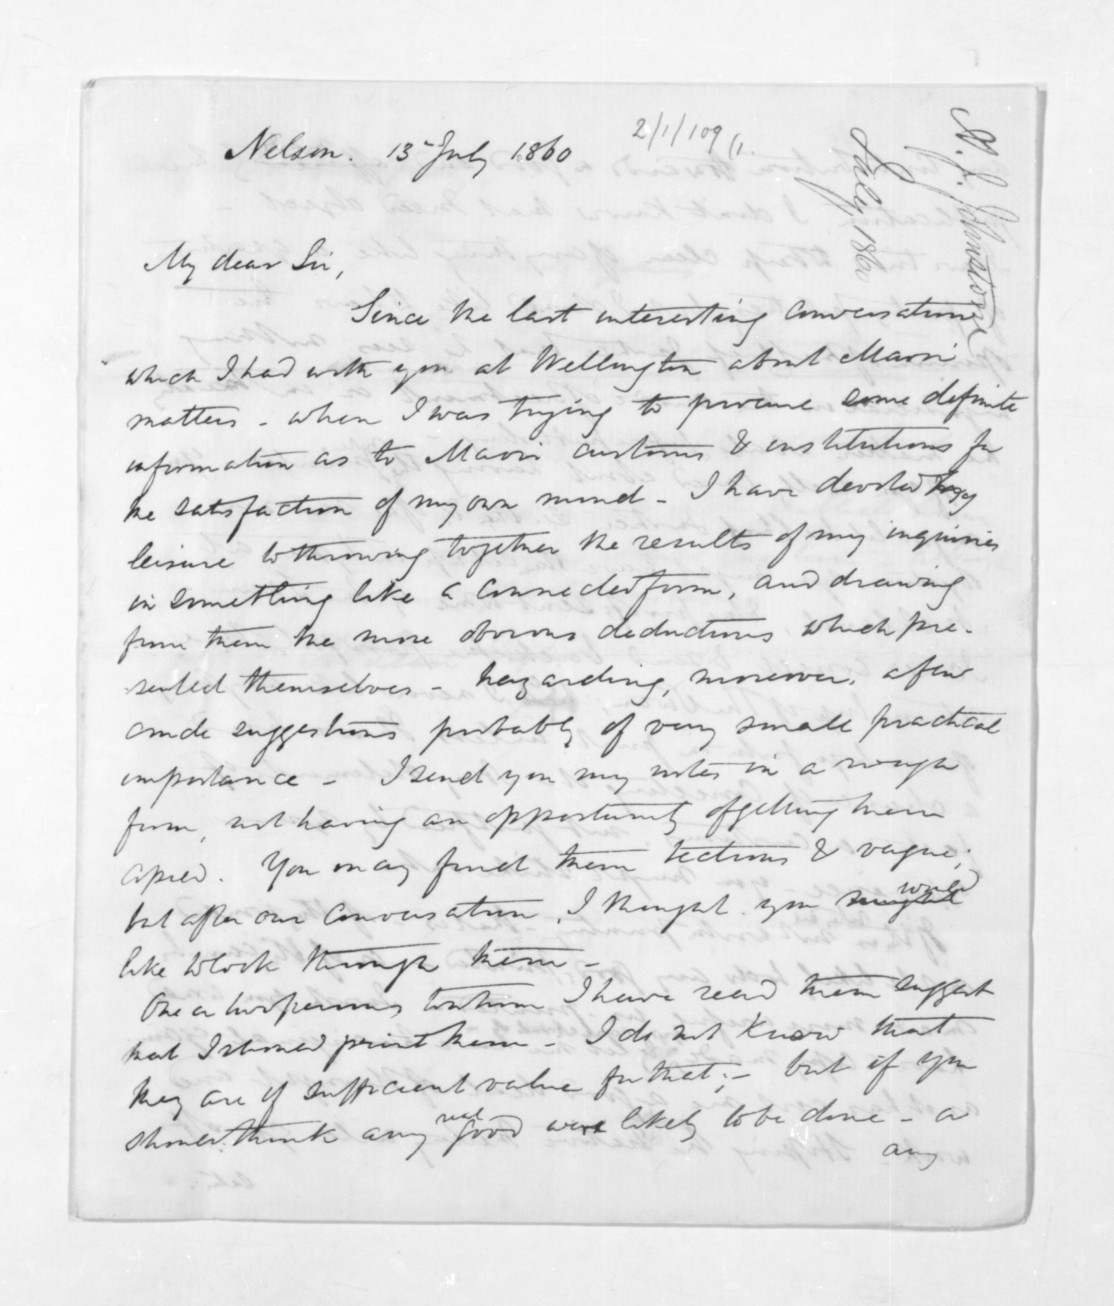 2/1/109/1.
A. J. Johnston
July 1860
Nelson. 13 July 1860
My dear Sir,
Since the last interesting conversation
which I had with you at Wellington about Maori
matters - when I was trying to procure some definite
information as to Maori customs & institutions for
the satisfaction of my own mind - I have devoted my
leisure to throwing together the results of my inquiries
in something like a connected form, and drawing
from them the more obvious deductions which pre-
sented themselves - hazarding, moreover, a few
crude suggestions probably of very small practical
importance - I send you my notes in a rough
form, not having an opportunity of getting them
copied. You may find them tedious & vague;
but after our conversation, I thought you would
like to look through them -
One or two persons to whom I have read them suggest
that I should print them - I do not know that
they are of sufficient value for that; - but if you
should think any real good were likely to be done - or
any